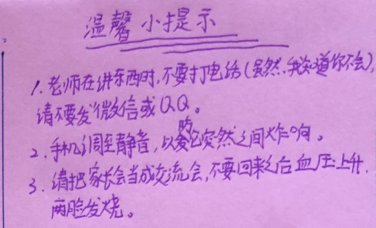 温馨小提示
1. 老师在讲东西时,不要打电话(虽然我知道你不会),
请不要发微信或QQ。
2. 手机调至静音,以防它突然之间炸响。
3. 请把家长会当成交流会,不要回来之后血压上升,
两脸发烧。